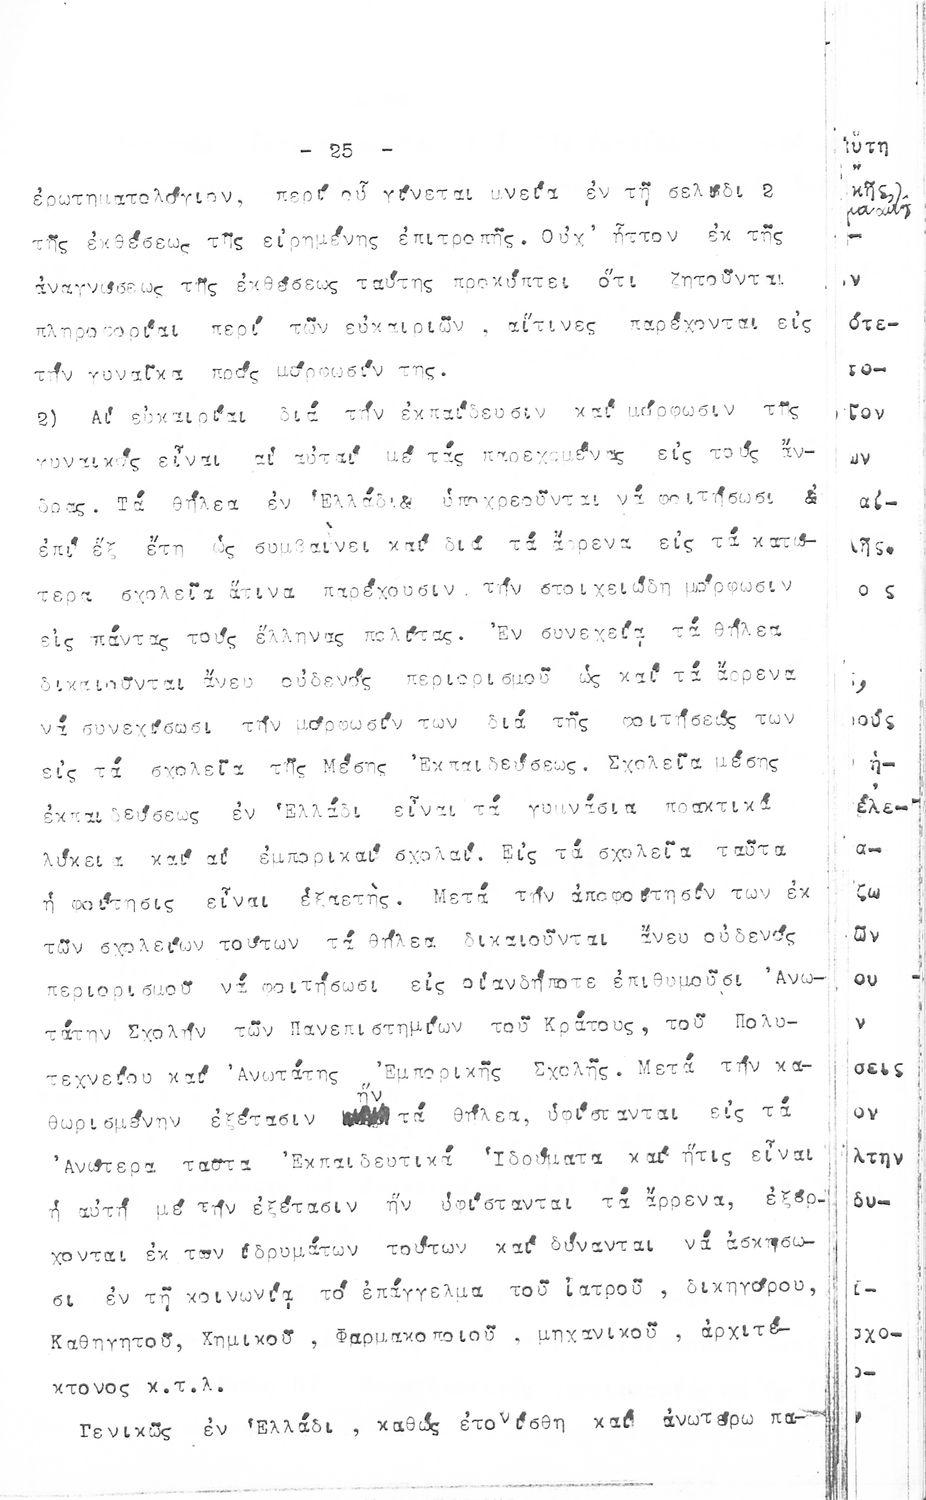 - 25 -
ἐρωτηματολόγιον, περί οὗ γίνεται μνεία ἐν τῇ σελίδι 2
τῆς ἐκθέσεως τῆς εἰρημένης ἐπιτροπῆς. Οὐχ' ἧττον ἐκ τῆς
ἀναγνώσεως τῆς ἐκθέσεως ταύτης προκύπτει ὅτι ζητοῦνται
πληροφορίαι περί τῶν εὐκαιριῶν , αἵτινες παρέχονται εἰς
τήν γυναῖκα πρός μόρφωσίν της.
2) Αἱ εὐκαιρίαι διά τήν ἐκπαίδευσιν καί μόρφωσιν τῆς
γυναικός εἶναι αἱ αὐταί μέ τάς παρεχομένας εἰς τούς ἄν-
δρας. Τά θήλεα ἐν Ἑλλάδι& ὑποχρεοῦνται νά φοιτήσωσι &
ἐπί ἕξ ἔτη ὡς συμβαὶνει καί διά τά ἄρρενα εἰς τά κατώ-
τερα σχολεῖα ἅτινα παρέχουσιν τήν στοιχειώδη μόρφωσιν
εἰς πάντας τούς ἕλληνας πολίτας. Ἐν συνεχείᾳ τά θήλεα
δικαιοῦνται ἄνευ οὐδενός περιορισμοῦ ὡς καί τά ἄρρενα
νά συνεχίσωσι τήν μόρφωσίν των διά τῆς φοιτήσεώς των
εἰς τά σχολεῖα τῆς Μέσης Ἐκπαιδεύσεως. Σχολεῖα μέσης
ἐκπαιδεύσεως ἐν Ἑλλάδι εἶναι τά γυμνάσια πρακτικά
λύκεια καί αἱ ἐμπορικαί σχολαί. Εἰς τά σχολεῖα ταῦτα
ἡ φοίτησις εἶναι ἑξαετὴς. Μετά τήν ἀποφοίτησίν των ἐκ
τῶν σχολείων τούτων τά θήλεα δικαιοῦνται ἄνευ οὐδενός
περιορισμοῦ νά φοιτήσωσι εἰς οἱανδήποτε ἐπιθυμοῦσι Ἀνω-
τάτην Σχολήν τῶν Πανεπιστημίων τοῦ Κράτους, τοῦ Πολυ-
τεχνείου καί Ἀνωτάτης Ἐμπορικῆς Σχολῆς. Μετά τήν κα-
θωρισμένην ἐξέτασιν ἥν τά θήλεα, ὑφίστανται εἰς τά
Ἀνώτερα ταῦτα Ἐκπαιδευτικά Ἱδρύματα καί ἥτις εἶναι
ἡ αὐτή μέ τήν ἐξέτασιν ἥν ὑφίστανται τά ἄρρενα, ἐξέρ-
χονται ἐκ των ἱδρυμάτων τούτων καί δύνανται νά ἀσκήσω-
σι ἐν τῇ κοινωνίᾳ τό ἐπάγγελμα τοῦ ἰατροῦ , δικηγόρου,
Καθηγητοῦ, Χημικοῦ , Φαρμακοποιοῦ , μηχανικοῦ , ἀρχιτέ-
κτονος κ.τ.λ.
Γενικῶς ἐν Ἑλλάδι , καθώς ἐτονίσθη καί ἀνωτέρω πα-